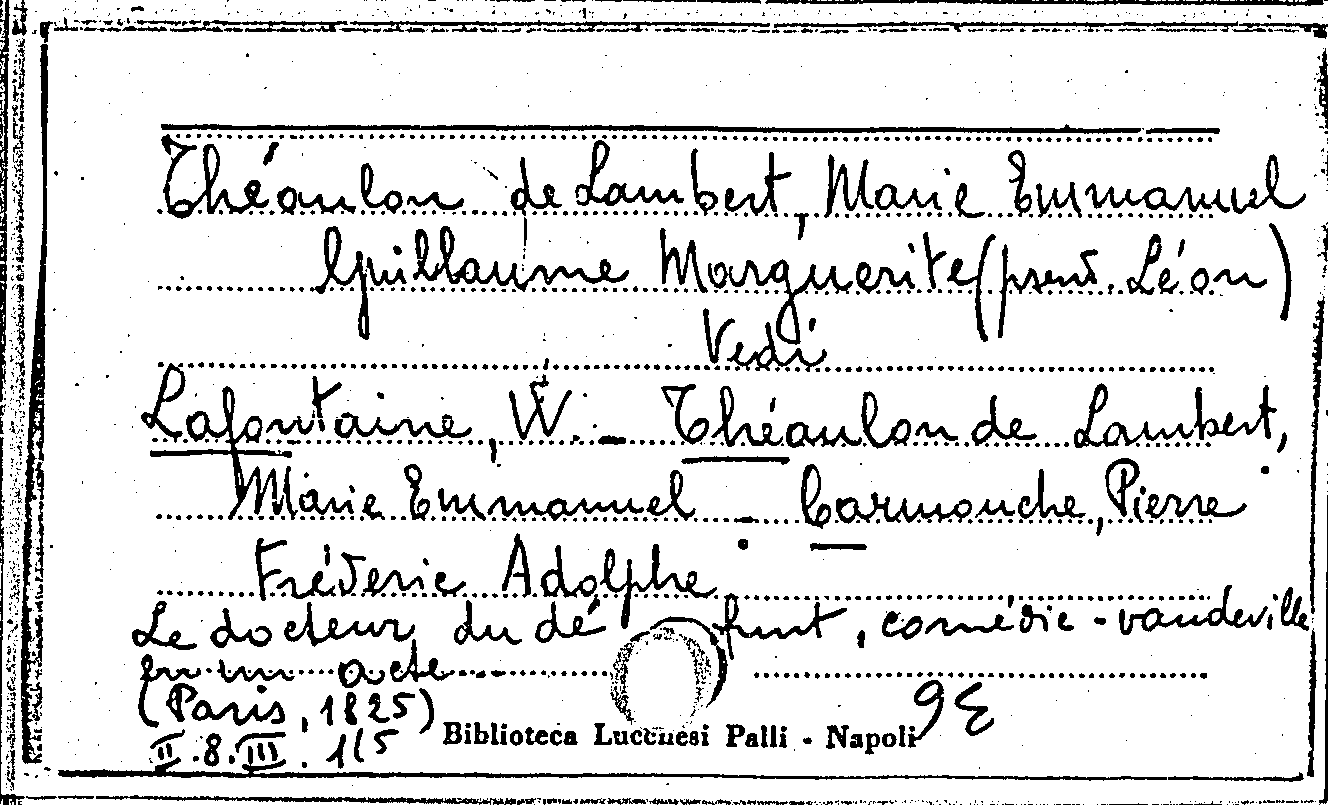 Théaulon de Lambert, Marie Emmanuel
Guillaume Marguerite (pseud. Léon)
Vedi
Lafontaine, W. - Théaulon de Lambert,
Marie Emmanuel - Carmouche, Pierre
Fréderic Adolphe.
Le docteur du défunt, comédie-vaudeville
en un acte
(Paris, 1825)
II.8.III.1(5 Biblioteca Lucchesi Palli - Napoli